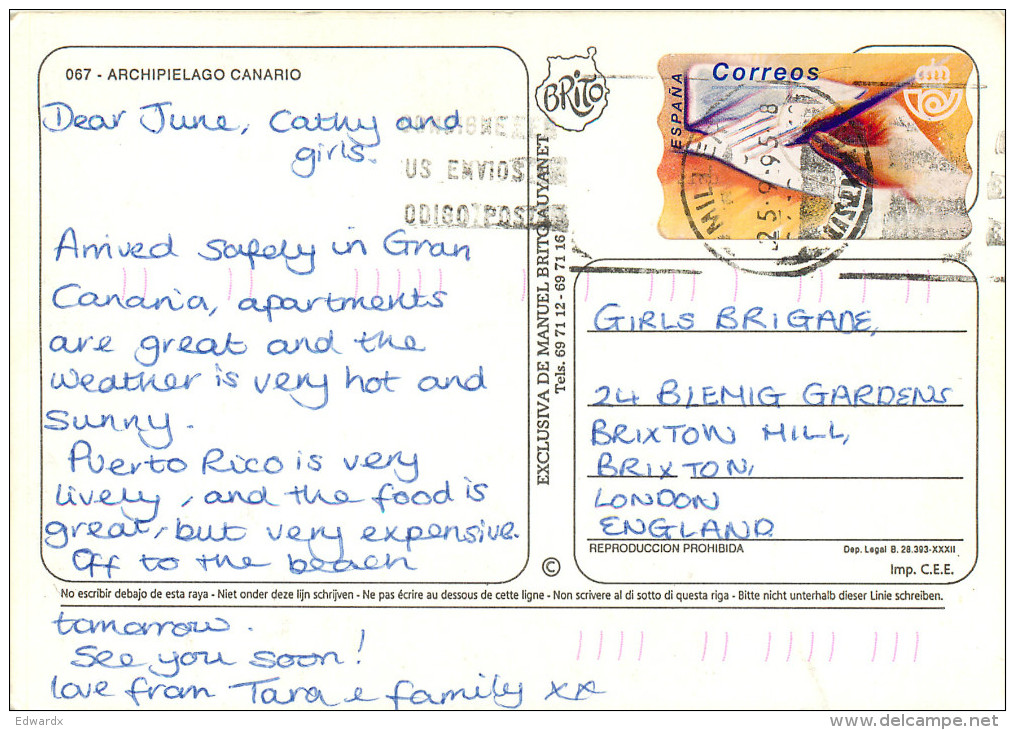 067 - ARCHIPIELAGO CANARIO
Dear June, Cathy and
girls.
Arrived safely in Gran
Canaria, apartments
are great and the
weather is very hot and
sunny.
Puerto Rico is very
lively, and the food is
great, but very expensive.
Off to the beach
tomorrow.
See you soon!
love from Tara e family xx
US ENVIOS
ODIGO POSTA
BRITO
EXCLUSIVA DE MANUEL BRITO AUYANET
Tels. 69 71 12 - 69 71 16
©
Correos
ESPAÑA
25-9-95-8
GIRLS BRIGADE,
24 BLEMIG GARDENS
BRIXTON HILL,
BRIXTON,
LONDON
ENGLAND
REPRODUCCION PROHIBIDA
Dep. Legal B. 28.393-XXXII
Imp. C.E.E.
No escribir debajo de esta raya - Niet onder deze lijn schrijven - Ne pas écrire au dessous de cette ligne - Non scrivere al di sotto di questa riga - Bitte nicht unterhalb dieser Linie schreiben.
Edwardx
delcampe.net